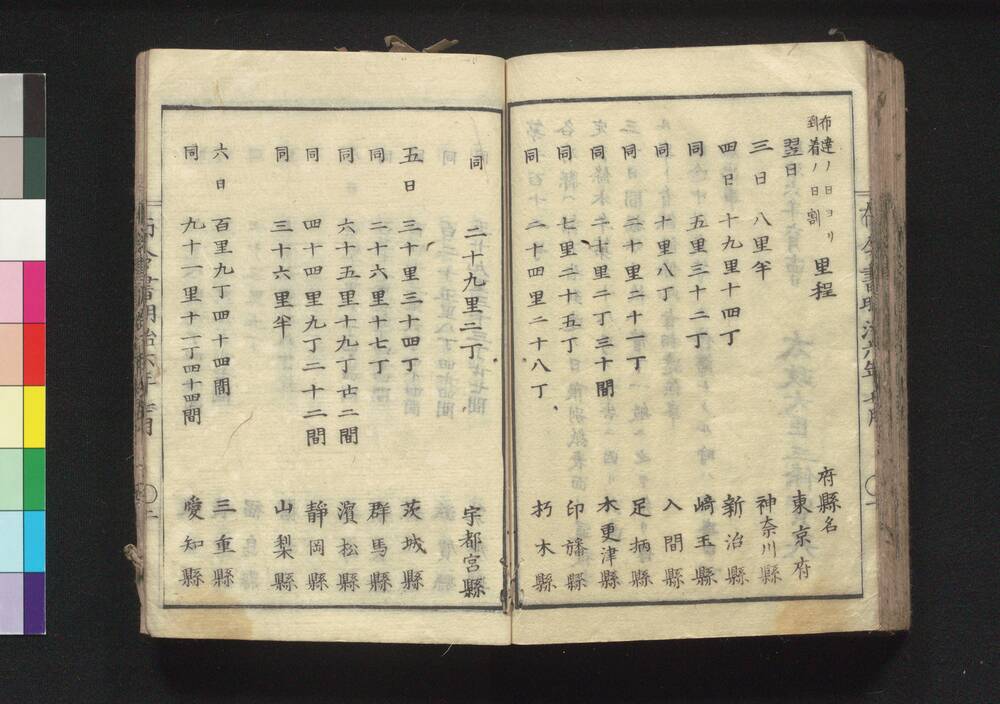 布達ノ日ヨリ到着ノ日割 里程 府縣名
翌日 東京府
三日 八里半 神奈川縣
四日 十九里十四丁 新治縣
同 五里三十二丁 﨑玉縣
同 十里八丁 入間縣
同 二十里二十一丁 足柄縣
同 二十里二丁三十間 木更津縣
同 七里二十五丁 印旛縣
同 二十四里二十八丁 朽木縣
同 二十九里二丁 宇都宮縣
五日 三十里三十四丁 茨城縣
同 二十六里十七丁 群馬縣
同 六十五里十九丁廿二間 濱松縣
同 四十四里九丁二十二間 静岡縣
同 三十六里半 山梨縣
六日 百里九丁四十四間 三重縣
同 九十一里十一丁四十四間 愛知縣
布令書明治六年七月